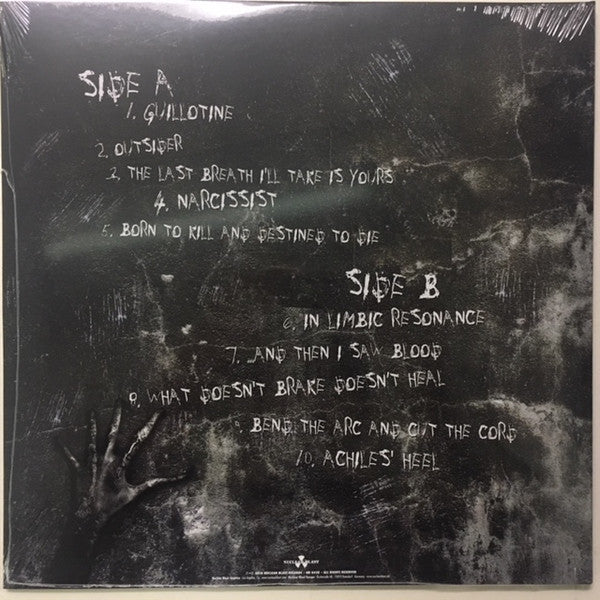 SIDE A
1. GUILLOTINE
2. OUTSIDER
3. THE LAST BREATH I'LL TAKE IS YOURS
4. NARCISSIST
5. BORN TO KILL AND DESTINED TO DIE
SIDE B
6. IN LIMBIC RESONANCE
7. AND THEN I SAW BLOOD
8. WHAT DOESN'T BRAKE DOESN'T HEAL
9. BEND THE ARC AND CUT THE CORD
10. ACHILES' HEEL
NUCLEAR BLAST